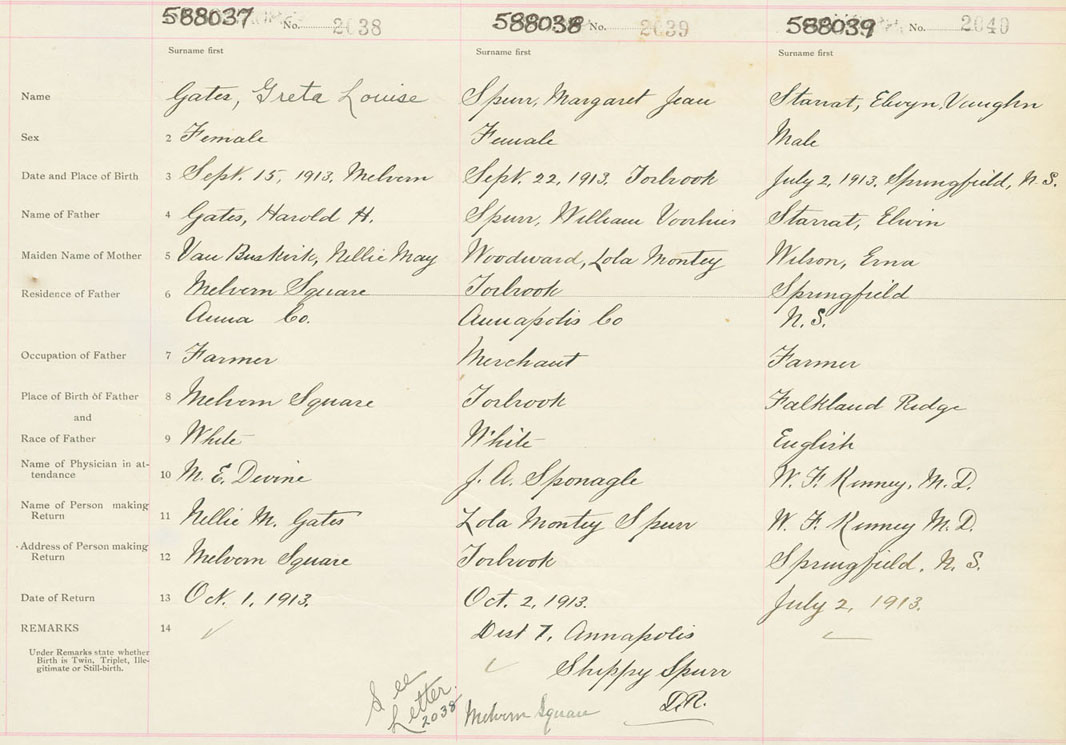 588037 No. 2038 588038 No. 2039 588039 No. 2040
Surname first Surname first Surname first
Name Gates, Greta Louise Spurr, Margaret Jean Starrat, Elwyn Vaughn
Sex 2 Female Female Male
Date and Place of Birth 3 Sept. 15, 1913. Melvern Sept. 22, 1913. Torbrook July 2, 1913. Springfield, N.S.
Name of Father 4 Gates, Harold H. Spurr, William Voorhies Starrat, Elwin
Maiden Name of Mother 5 Van Buskirk, Nellie May Woodward, Lola Montey Wilson, Erna
Residence of Father 6 Melvern Square Torbrook Springfield
Anna Co. Annapolis Co N.S.
Occupation of Father 7 Farmer Merchant Farmer
Place of Birth of Father 8 Melvern Square Torbrook Falkland Ridge
and
Race of Father 9 White White English
Name of Physician in at-
tendance 10 M. E. Devine J. A. Sponagle W. F. Kinney, M.D.
Name of Person making
Return 11 Nellie M. Gates Lola Montey Spurr W. F. Kinney M.D.
Address of Person making
Return 12 Melvern Square Torbrook Springfield, N.S.
Date of Return 13 Oct. 1, 1913. Oct. 2, 1913. July 2, 1913.
REMARKS 14 Dist 7, Annapolis
Under Remarks state whether
Birth is Twin, Triplet, Ille-
gitimate or Still-birth.
Shippy Spurr
D.R.
See
Letter
2038
Melvern Square